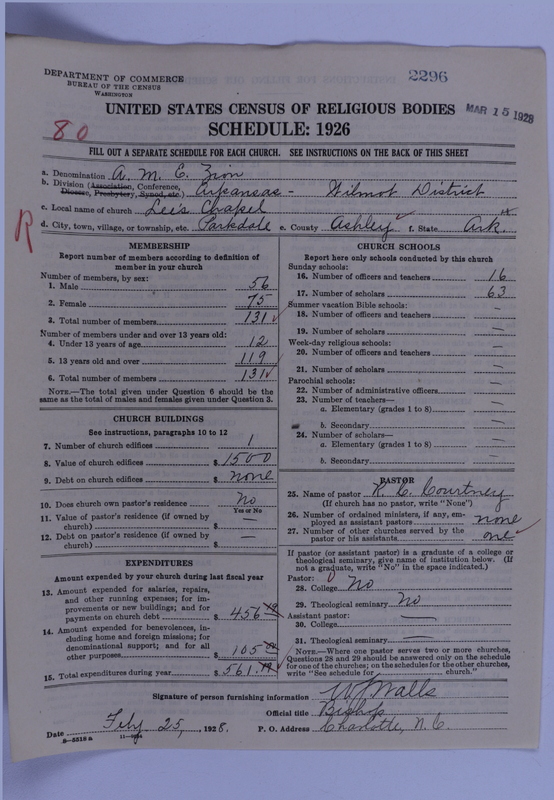 2296
DEPARTMENT OF COMMERCE
BUREAU OF THE CENSUS
WASHINGTON
MAR 15 1928
UNITED STATES CENSUS OF RELIGIOUS BODIES
SCHEDULE: 1926
80
FILL OUT A SEPARATE SCHEDULE FOR EACH CHURCH. SEE INSTRUCTIONS ON THE BACK OF THIS SHEET
a. Denomination A. M. E. Zion
b. Division (Association, Conference, Diocese, Presbytery, Synod, etc.) Arkansas - Wilmot District
c. Local name of church Lee's Chapel
R
d. City, town, village, or township, etc. Parkdale e. County Ashley f. State Ark.
MEMBERSHIP
Report number of members according to definition of
member in your church
Number of members, by sex:
1. Male 56
2. Female 75
3. Total number of members 131
Number of members under and over 13 years old:
4. Under 13 years of age 12
5. 13 years old and over 119
6. Total number of members 131
NOTE.—The total given under Question 6 should be
same as the total of males and females given under Question 3.
CHURCH BUILDINGS
See instructions, paragraphs 10 to 12
7. Number of church edifices 1
8. Value of church edifices $ 1500
9. Debt on church edifices $ none
10. Does church own pastor's residence No
Yes or No
11. Value of pastor's residence (if owned by
church) $ —
12. Debt on pastor's residence (if owned by
church) $ —
EXPENDITURES
Amount expended by your church during last fiscal year
13. Amount expended for salaries, repairs,
and other running expenses; for im-
provements or new buildings; and for
payments on church debt $ 456
14. Amount expended for benevolences, in-
cluding home and foreign missions; for
denominational support; and for all
other purposes $ 105
15. Total expenditures during year $ 561
CHURCH SCHOOLS
Report here only schools conducted by this church
Sunday schools:
16. Number of officers and teachers 16
17. Number of scholars 63
Summer vacation Bible schools:
18. Number of officers and teachers —
19. Number of scholars —
Week-day religious schools:
20. Number of officers and teachers —
21. Number of scholars —
Parochial schools:
22. Number of administrative officers —
23. Number of teachers—
a. Elementary (grades 1 to 8) —
b. Secondary —
24. Number of scholars—
a. Elementary (grades 1 to 8) —
b. Secondary —
PASTOR
25. Name of pastor Courtney
(If church has no pastor, write "None")
26. Number of ordained ministers, if any, em-
ployed as assistant pastors none
27. Number of other churches served by the
pastor or his assistants one
If pastor (or assistant pastor) is a graduate of a college or
theological seminary, give name of institution below. (If
not a graduate, write "No" in the space indicated.)
Pastor:
28. College No
29. Theological seminary No
Assistant pastor:
30. College —
31. Theological seminary —
NOTE.—Where one pastor serves two or more churches,
Questions 28 and 29 should be answered only on the schedule
for one of the churches; on the schedules for the other churches,
write "See schedule for church."
Signature of person furnishing information W J Walls
Official title Bishop
Date Feby 25, 1928. P. O. Address Charlotte, N. C.
8-5518 a